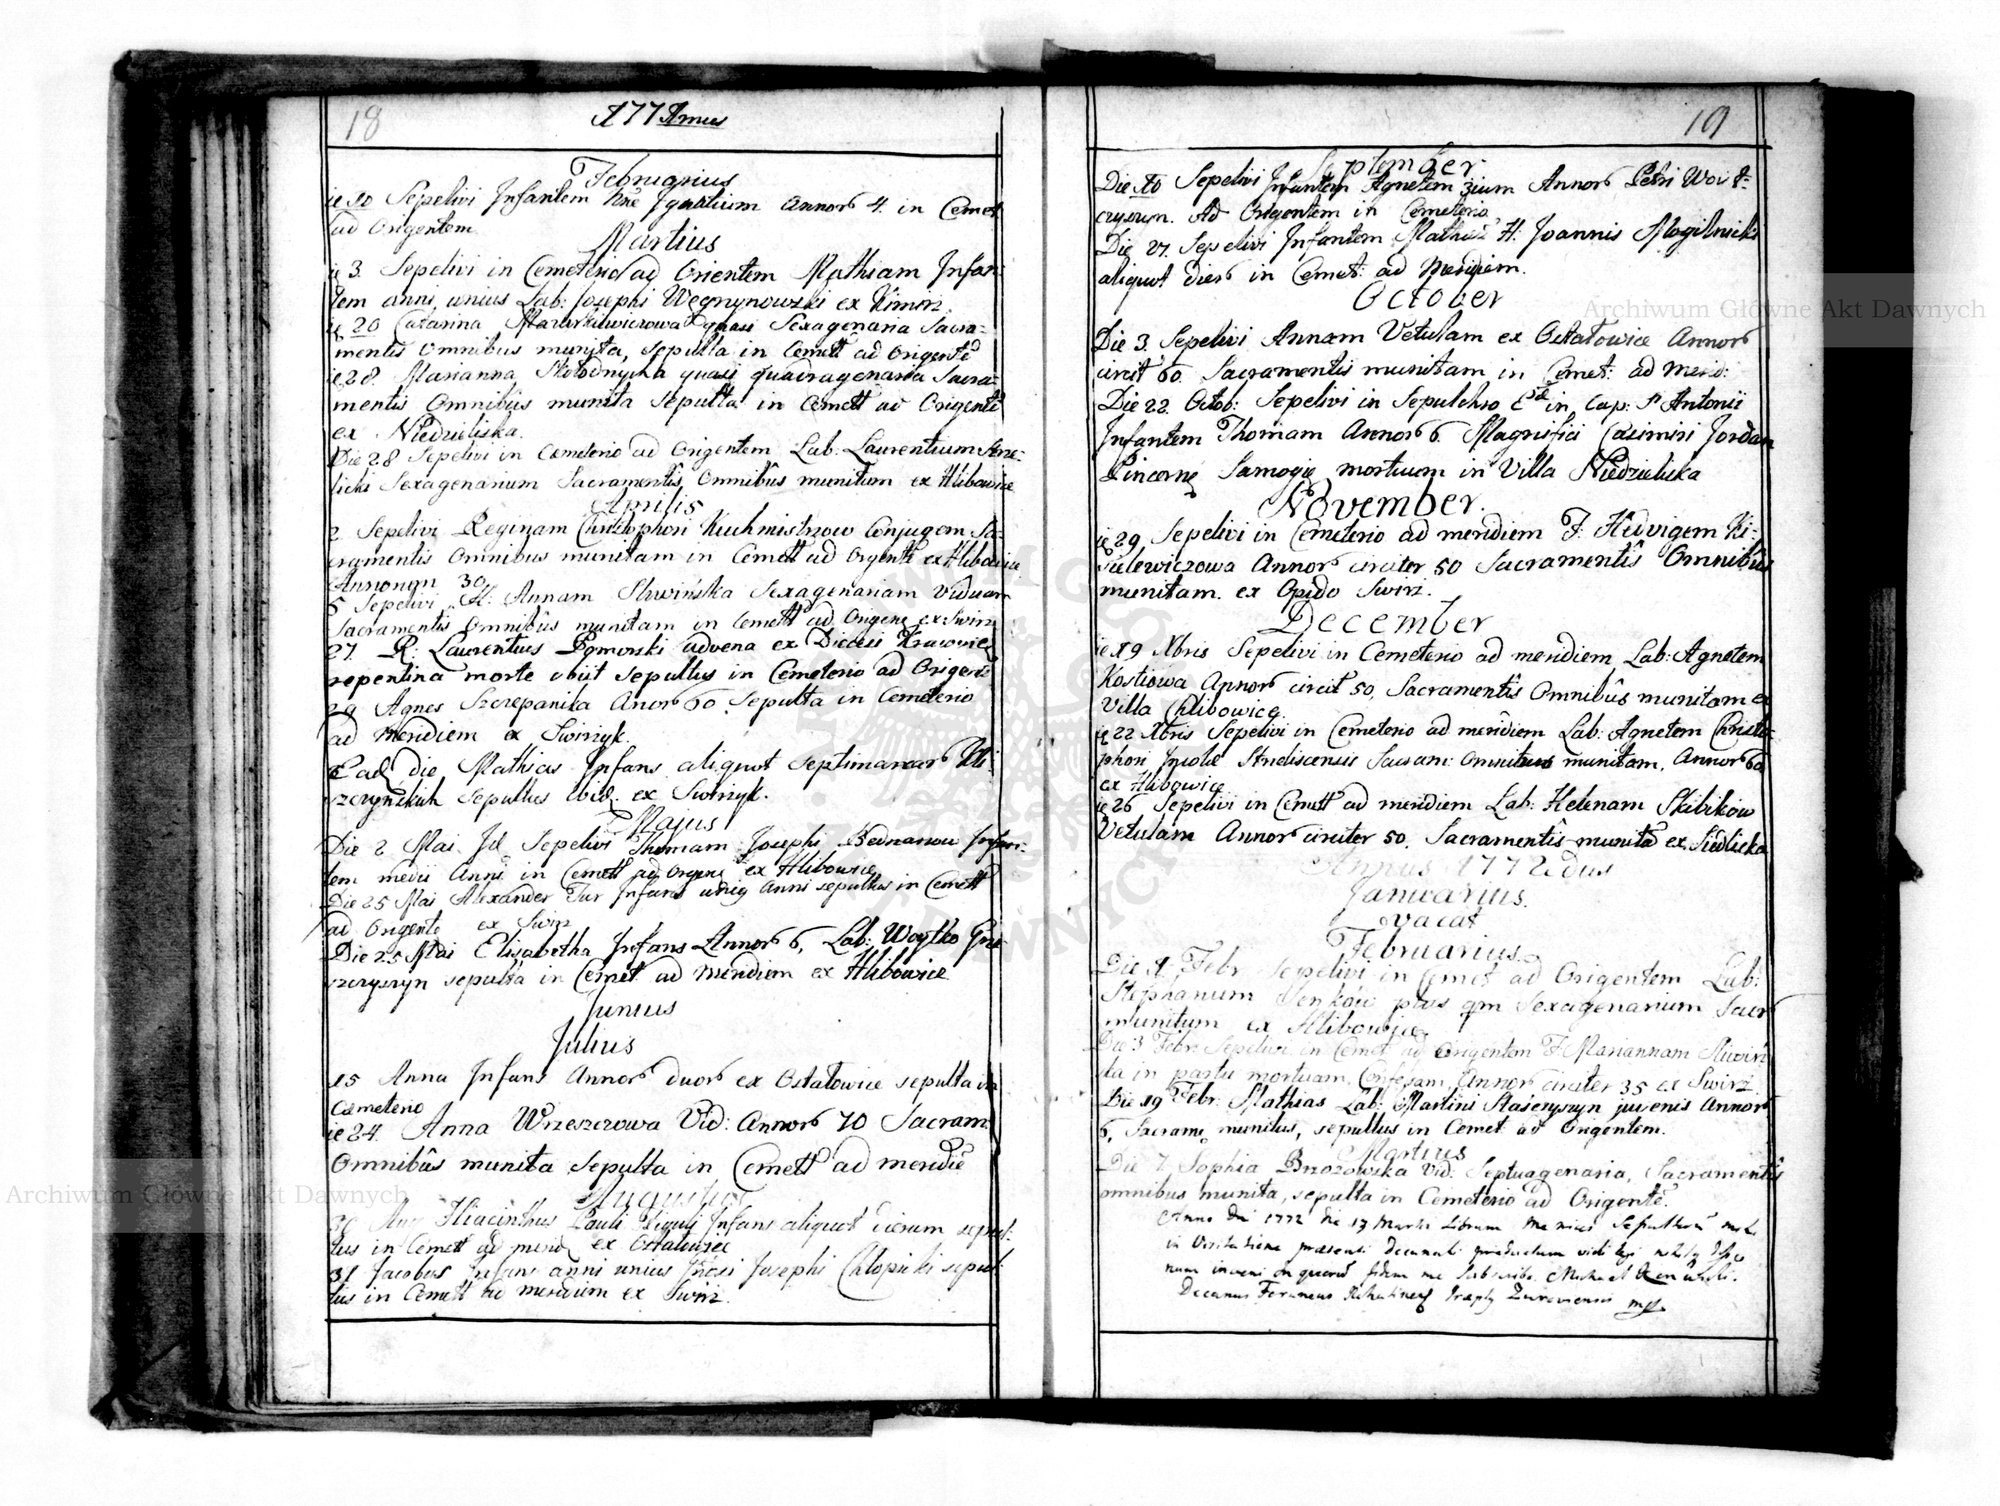 18
177 Annus
Februarius
ie 10 Sepelivi Infantem Ignatium Annor 4. in Cemet
ad Origentem
Martius
ie 3. Sepelivi in Cemeterio ad Orientem Mathiam Infan-
tem anni unius Lab: Josephi Wegrynowski ex Kimirz.
ie 20 Catarina quasi Sexagenaria Sacra-
mentis Omnibus munita, sepulta in Cemett ad Origente
ie 28. Marianna quasi quadragenaria Sacra-
mentis Omnibus munita Sepulta in Cemett ad Origente
ex Niedzieliska.
Die 28 Sepelivi in Cemeterio ad Origentem Lab: Laurentium
licki Sexagenarium Sacramentis Omnibûs munitum ex Hlibowice
Aprilis
2 Sepelivi Reginam Christophori Kuchmistrzow Conjugem Sa-
cramentis Omnibus munitam in Cemett ad Orgente ex Hlibowice
Annorum 30.
5 Sepelivi H: Annam Sliwińska Sexagenariam Viduam
Sacramentis Omnibûs munitam in Cemett ad Origene ex Swirz
27. R: Laurentius Pomorski advena ex Diecesi
repentina morte obiit sepultus in Cemeterio ad Origent
29 Agnes Szczepanika Anor 60 Sepulta in Cemeterio
ad meridiem ex Swirzyk.
Eadę die Mathias Infans aliquot Septimanar
szczyńskich sepultus ibid. ex Swirzyk.
Majus
Die 2 Mai Id Sepelivi Thomam Josephi Bednarow Infan-
tem medii Anni in Cemett ad Orgene ex Hlibowice
Die 25 Mai Alexander Tur Infans unig Anni sepultus in Cemett
ad Origente ex Swirz
Die 25 Mai Elisabetha Infans Annor 6, Lab: Woytko
szczyszyn sepulta in Cemet ad meridiem ex Hlibowice
Junius
Julius
15 Anna Infans Annor duor ex Ostalowice sepulta in
Cemeterio
ie 24. Anna Wrzeszczowa Vid: Annor 70 Sacram
Omnibûs munita sepulta in Cemett ad meridie
Augustus
30 Aug Hiacinthus Pauli Infans aliquot dierum sepul-
tus in Cemett ad merid ex Ostalowice
31 Jacobus Infans anni unius Josephi Chlopicki sepul
tus in Cemett ad meridiem ex Swirz.
19
September
Die 10 Sepelivi Infantem Agnetem 3ium Annor Petri
Ad Origentem in Cemeterio
Die 27. Sepelivi Infantem H: Joannis Mogilnicki
aliquot dier in Cemet: ad Meridiem.
October
Die 3. Sepelivi Annam Vetulam ex Ostalowice Annor
circit 60. Sacramentis munitam in Cemet: ad Merid:
Die 22. Octob: Sepelivi in Sepulchro in Cap: S Antonii
Infantem Thomam Annor 6. Magnifici Casimiri Jordan
Pincernę Samogię mortuum in Villa Niedzieliska
November.
ie 29 Sepelivi in Cemeterio ad meridiem F: Hedvigem Ki-
sielewiczowa Annor circiter 50 Sacramentis Omnibûs
munitam. ex Opido Swirz.
December
ie 19 Xbris Sepelivi in Cemeterio ad meridiem Lab: Agnetem
Kostiowa Annor circit 50, Sacramentis Omnibûs munitam ex
Villa Chlibowice
ie 22 Xbris Sepelivi in Cemeterio ad meridiem Lab: Agnetem Christo-
phori Sacram: Omnibus munitam, Annor 60
ex Hlibowice
ie 26 Sepelivi in Cemett ad meridiem Lab: Helenam Skibikow
Vetulam Annor circiter 50, Sacramentis munita ex Siedliska
Annus 1772dus
Januarius.
vacat
Februarius.
Die 1 Febr Sepelivi in Cemet ad Origentem Lab:
Stephanum plus qm Sexagenarium Sacr
munitum ex Hlibowice
Die 3 Febr: Sepelivi in Cemet ad Origentem F. Mariannam
in partu mortuam, Confesam, Annor circiter 35 ex Swirz
Die 19 Febr: Mathias Lab: Martini juvenis Annor
6, Sacram munitus, sepultus in Cemet ad Origentem.
Martius
Die 7 Sophia Brzozowska Vid: Septuagenaria, Sacramentis
omnibus munita, sepulta in Cemeterio ad Origente.
Anno Dni 1772 Die 17 Martii Librum
in Visitatione praesenti Decanali productum vidi legi
num inveni In quorum fidem me Subscribo. Michael
Decanus Foraneus
Archiwum Główne Akt Dawnych
Archiwum Główne Akt Dawnych